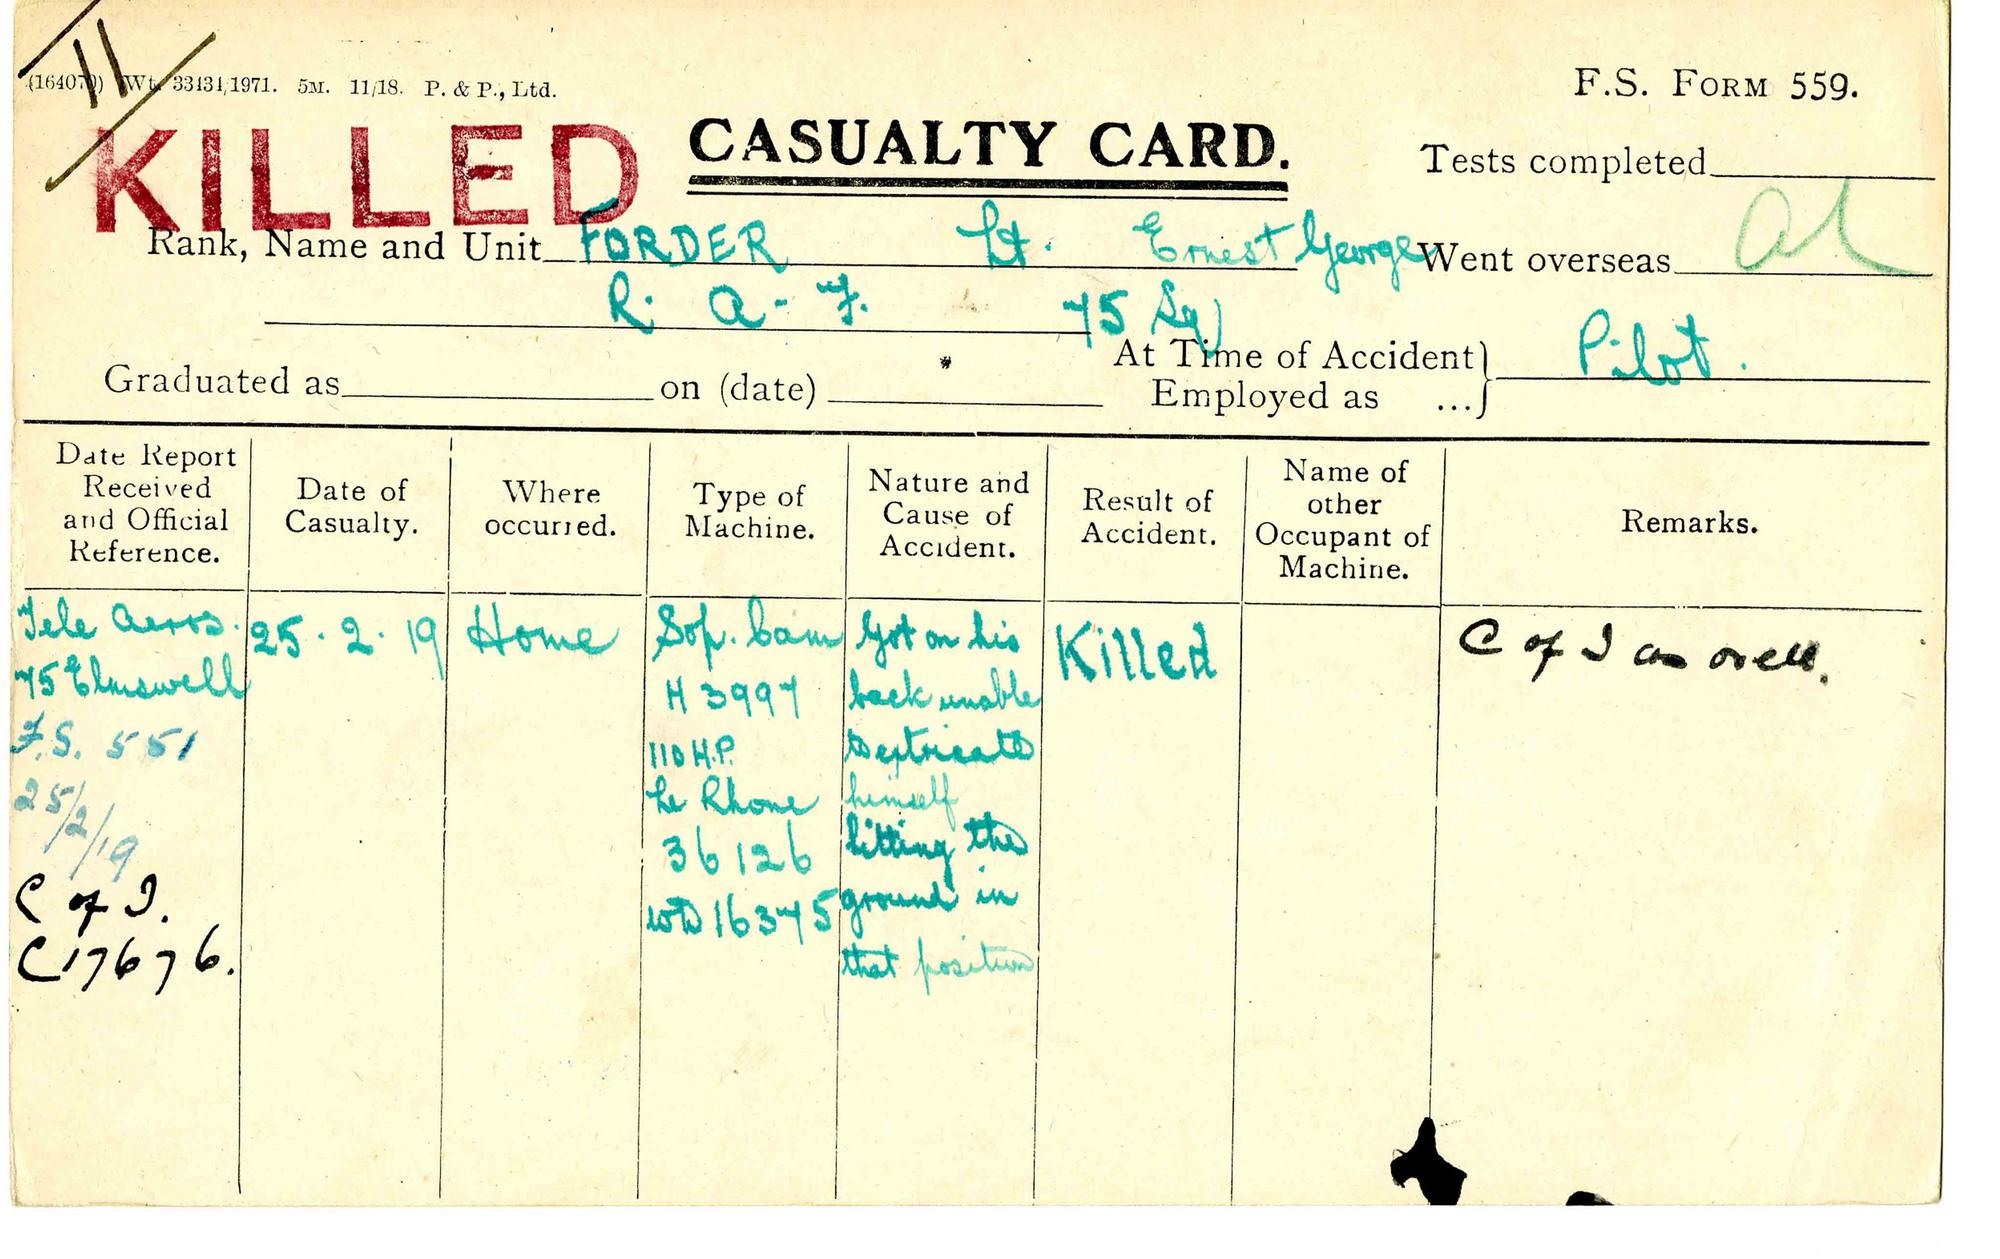 11
(164070) Wt. 33434/1971. 5M. 11/18. P. & P., Ltd.
F.S. FORM 559.
KILLED
CASUALTY CARD.
Tests completed
Rank, Name and Unit FORDER Lt. Ernest George
Went overseas
R. A. F. 75 Sq
Graduated as on (date)
At Time of Accident
Employed as ...} Pilot.
Date Report Received and Official Reference.
Date of Casualty.
Where occurred.
Type of Machine.
Nature and Cause of Accident.
Result of Accident.
Name of other Occupant of Machine.
Remarks.
Tele Aeros.
75 Elmswell
F.S. 551
25/2/19
C of I.
C17676.
25.2.19
Home
Sop. Cam
H 3997
110 H.P.
Le Rhone
36126
WD 16375
Got on his
back unable
to extricate
himself
hitting the
ground in
that position
Killed
C of I as ovell.